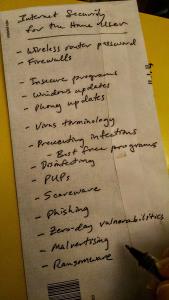 Internet Security
for the Home User
- Wireless router password
- Firewalls
- Insecure programs
- Windows updates
- Phony updates
- Virus terminology
- Preventing infections
- Best free programs
- Disinfecting
- PUPs
- Scareware
- Phishing
- Zero-day vulnerabilities
- Malvertising
- Ransomware